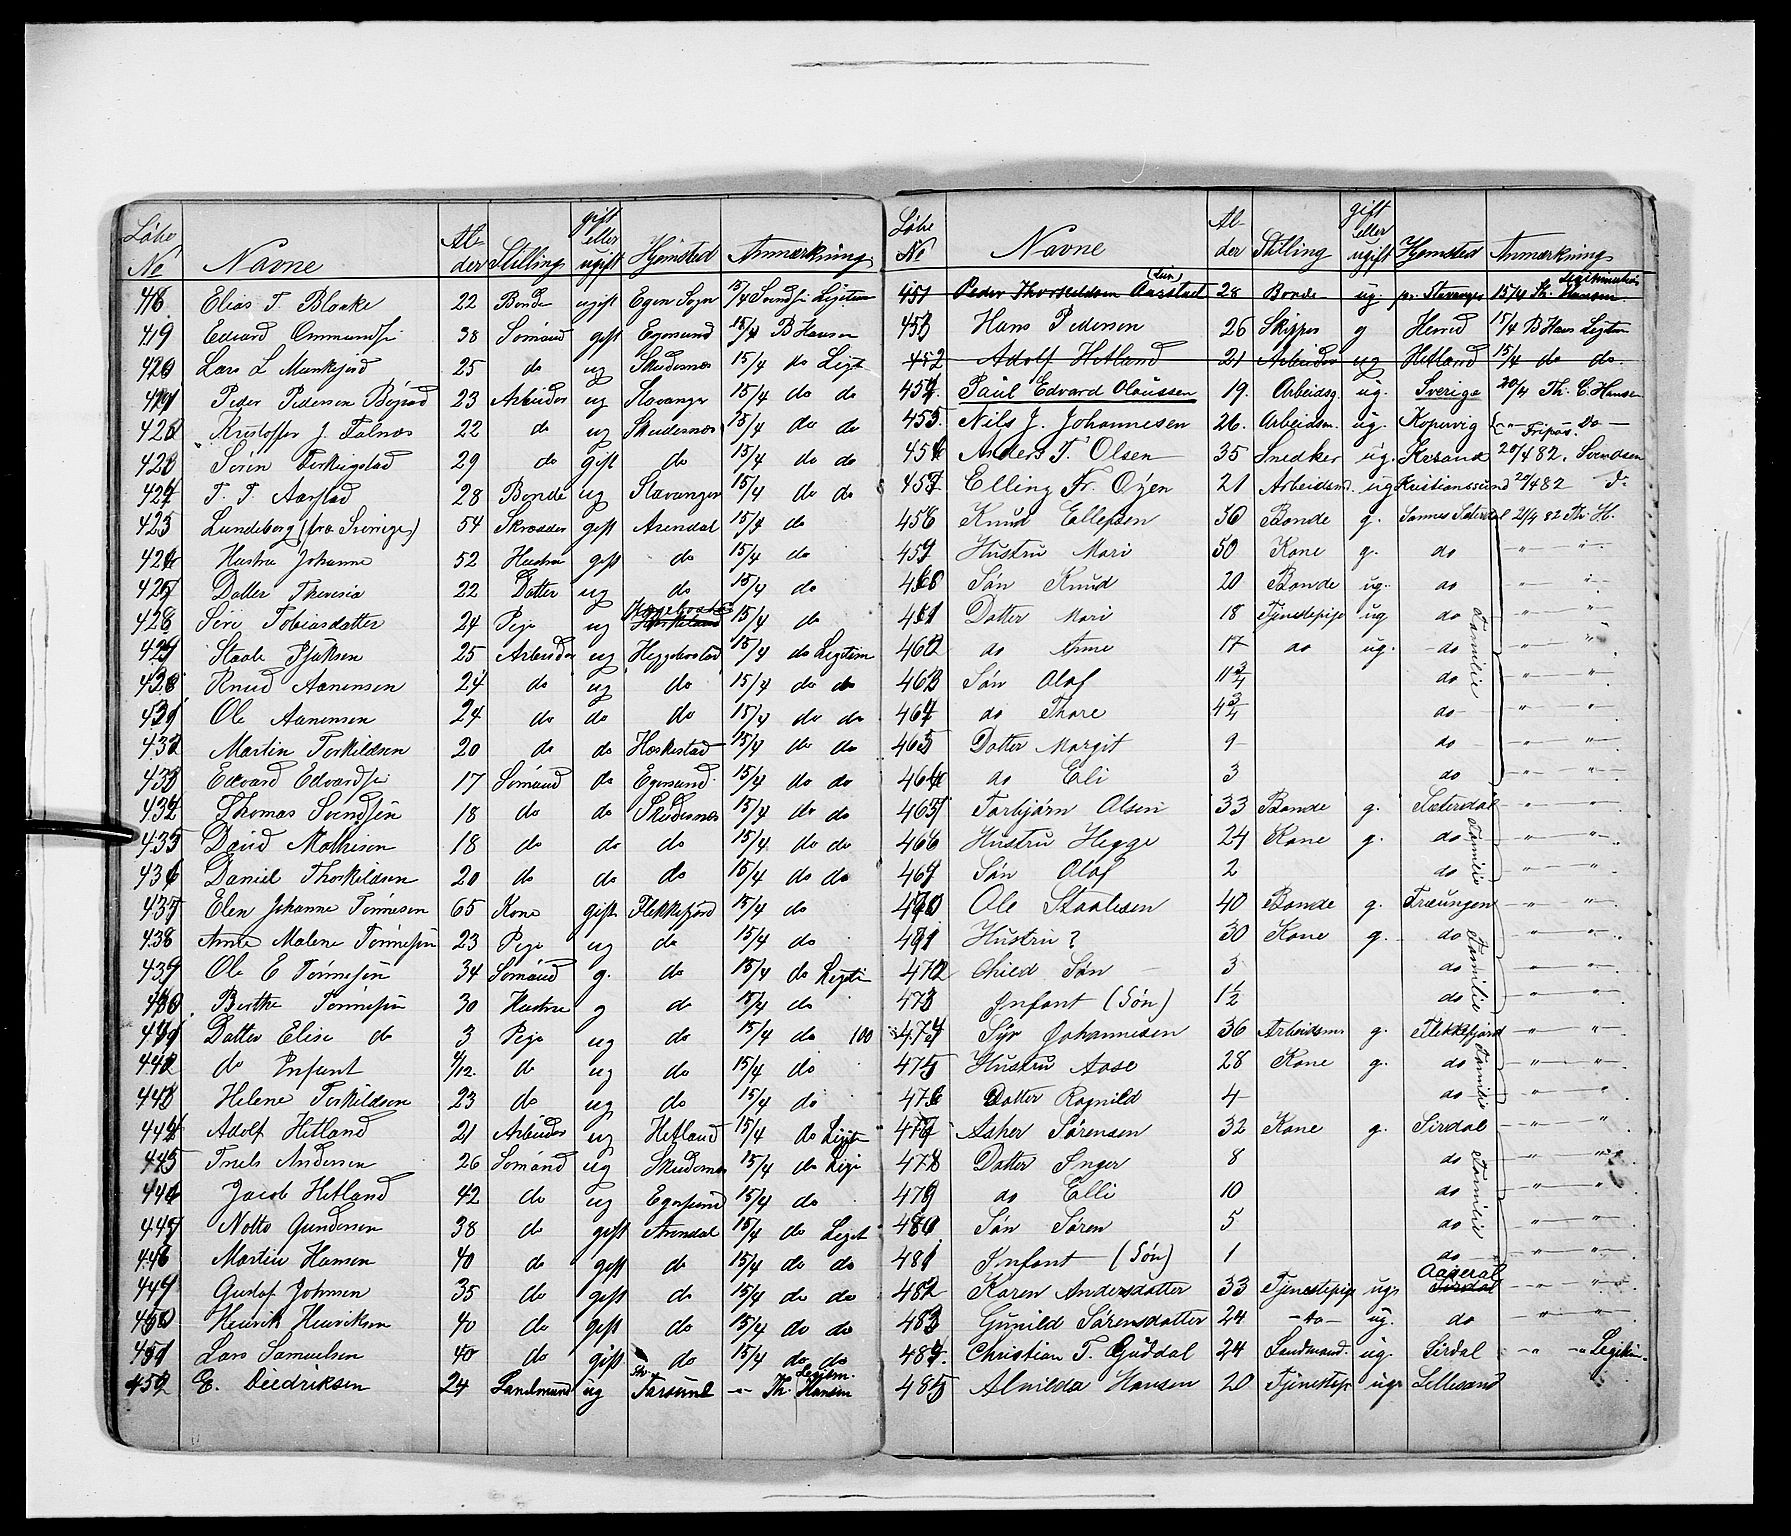 Løbe No | Navne | Alder | Stilling | gift eller ugift | Hjemsted | Anmærkning
418 Elias T. Blaake 22 Bonde ugift Egers Sogn 15/4 Svendse Legitim
419 Edvard Ommundse 38 Sømand gift Egersund 15/4 B Hansen
420 Lars L Munkejord 25 do ug Skudesnæs 15/4 do Legt
421 Peder Pedersen 23 Arbeider ug Stavanger 15/4 do do
422 Kristoffer J. Falnæs 22 do ug Skudesnæs 15/4 do do
423 Søren Torkigstad 29 do gift do 15/4 do do
424 T. T. Aarstad 28 Bonde ug Stavanger 15/4 do do
425 Lundeborg (fra Sverige) 54 Skrædder gift Arendal 15/4 do
426 Hustru Johanne 52 Hustru gift do 15/4 do
427 Datter Theresia 22 Datter ug do 15/4 do
428 Siri Tobiasdatter 24 Pige ug 15/4 do
429 Staale 25 Arbeider ug Heggebostad 15/4 do Legtim
430 Knud Aanensen 24 do ug do 15/4 do do
431 Ole Aanensen 24 do do do 15/4 do do
432 Martin Torkildsen 20 do do Heskestad 15/4 do do
433 Edvard Edvardse 17 Sømand do Egersund 15/4 do do
434 Thomas Svendsen 18 do do Skudesnæs 15/4 do do
435 David Mathisen 18 do do do 15/4 do do
436 Daniel Thorkildsen 20 do do do 15/4 do do
437 Elen Johanne Tønnesen 65 Kone gift Flekkefjord 15/4 do
438 Anne Malene Tønnesen 23 Pige ug do 15/4 do
439 Ole E Tønnesen 34 Sømand g. do 15/4 do Legti
440 Berthe Tønnesen 30 Hustru g do 15/4 do
441 Datter Elise do 3 Pige ug do 15/4 do 100
442 do Infant 4/12 do ug do 15/4 do
443 Helene Torkildsen 23 do ug do 15/4 do
444 Adolf Hetland 21 Arbeider ug Hetland 15/4 do Legti
445 Andersen 26 Sømand ug Skudesnæs 15/4 do Legi
446 Jacob Hetland 42 do ug Egersund 15/4 do
447 Notto Gundersen 38 do gift Arendal 15/4 do Legit
448 Martin Hansen 40 do gift do 15/4 do do
449 Gustaf Johnsen 35 do gift do 15/4 do do
450 Henrik Henriksen 40 do gift do 15/4 do do
451 Lars Samuelsen 40 do gift do 15/4 do do
452 E. Diedriksen 24 Landmand ug Farsund " Th. Hansen Legitm.
Løbe No | Navne | Alder | Stilling | gift eller ugift | Hjemsted | Anmærkning
451 Peder Thorkildsen Aarstad 28 Bonde ug. pr. Stavanger 15/4 Th. Hansen legitimation
453 Hans Pedersen 26 Skipper g 15/4 B Hans Legtim
452 Adolf Hetland 21 Arbeider ug Hetland 15/4 do do.
454 Paul Edvard Olaussen 19. Arbeidsg. ug. Sverige 20/4 Th. C. Hansen
455 Nils J. Johannesen 26. Arbeidsm. ug. Kopervig " Do Fripas.
456 Anders T. Olsen 35 Snedker ug. Krsand 20/4 82. Svendsen
457 Elling Fr. Øyen 21 Arbeidsmd. ug Kristianssund 20/4 82 Do
458 Knud Ellefsen 50 Bonde g. Sannes Sæterdal 21/4 82 Th. H.
459 Hustru Mari 50 Kone g. do " "
460 Søn Knud 20 Bonde ug. do " "
461 Datter Mari 18 Tjenestepige ug do " "
462 do Anne 17 do ug. do " "
463 Søn Olaf 11 3/4 do " "
464 do Thore 4 3/4 do " "
465 Datter Margit 9 do " "
466 do Eli 3 do " "
Familie
467 Torbjørn Olsen 33 Bonde g. Sæterdal " "
468 Hustru Hegge 24 Kone g. do " "
469 Søn Olaf 2 do " "
Familie
470 Ole Staalesen 40 Bonde g. Træungen " "
471 Hustru? 30 Kone g. do " "
472 Child Søn 3 do " "
473 Infant (Søn) 1 1/2 do " "
Familie
474 Syv Johannesen 36 Arbeidsm. g. Flekkefjord " "
475 Hustru Aase 28 Kone g. do " "
476 Datter Ragnild 4 do " "
Familie
477 Asher Sørensen 32 Kone g. Sirdal " "
478 Datter Inger 8 do " "
479 do Elli 10 do " "
480 Søn Søren 5 do " "
481 Infant (Søn) 1 do " "
Familie
482 Karen Andersdatter 33 Tjenestepig ug. Sirdal " "
483 Gunild Sørensdatter 24 do ug. do " "
484 Christian T. Guddal 24 Landmand. ug. Sirdal " " Legitim.
485 Alvilda Hansen 20 Tjenestep ug. Lillesand